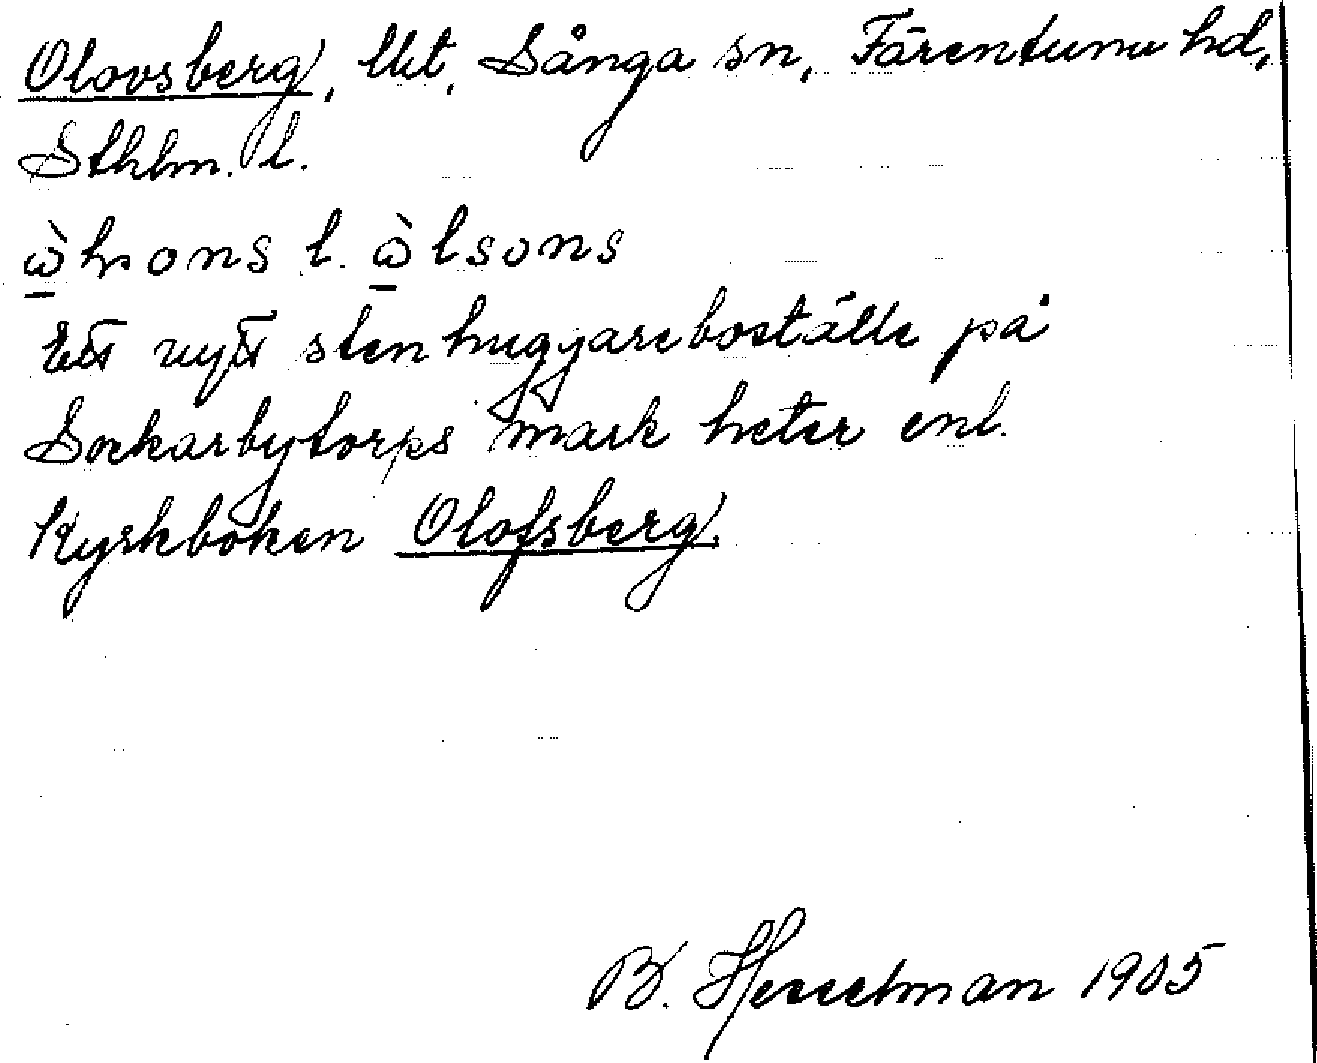 Olovsberg, lht, Sånga sn, Färentuna hd,
Sthlm. l.
l. ὼ̲lsons
Ett nytt stenhuggareboställe på
Sockarbytorps mark heter enl.
Kyrkboken Olofsberg.
B. Hesselman 1905